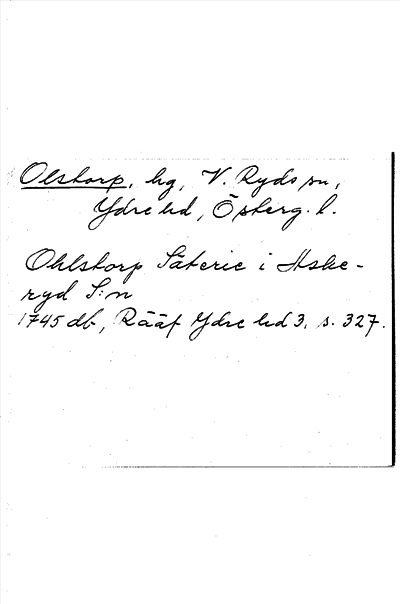 Olstorp, hg, V. Ryds sn,
Ydre hd, Österg. l.
Ohlstorp Säterie i Aske-
ryd S:n
1745 db, Rääf Ydre hd 3, s. 327.